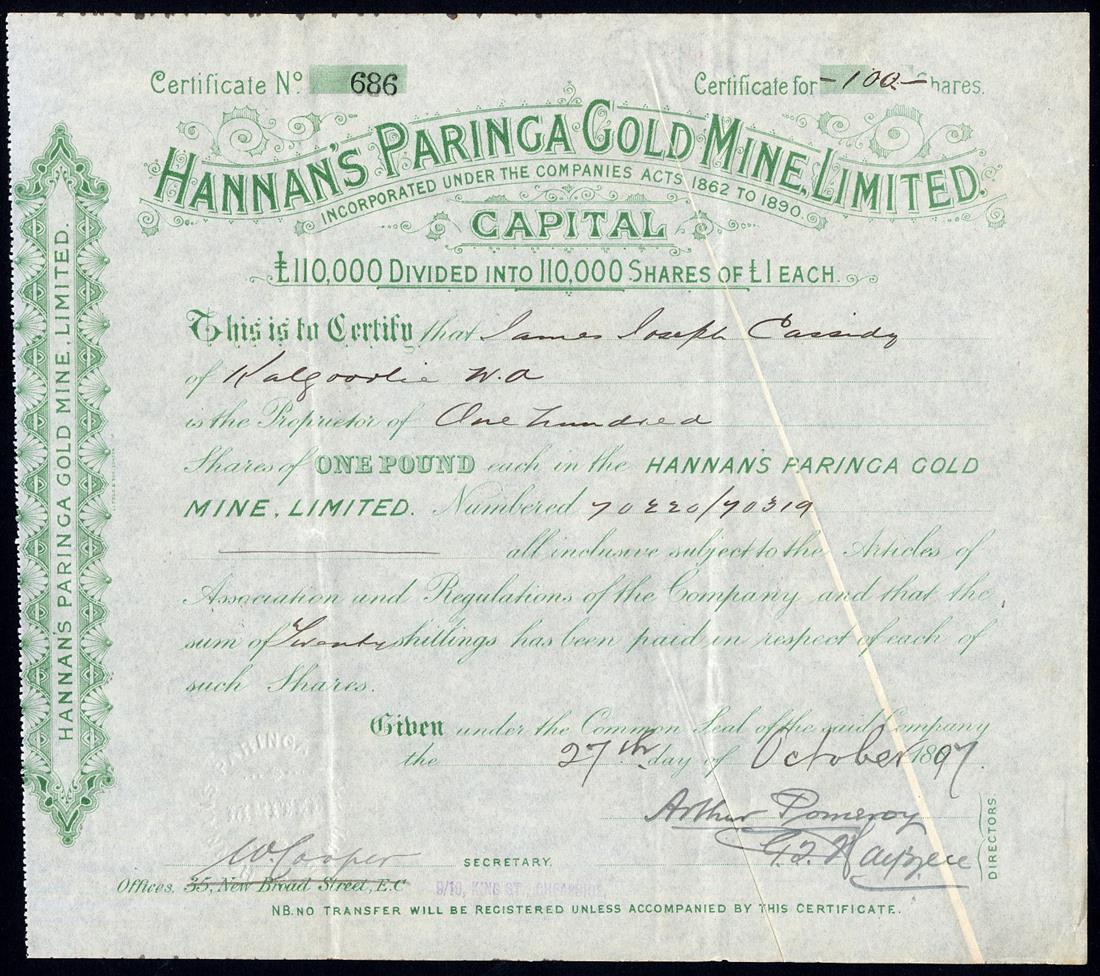 Certificate No. 686
Certificate for -100- Shares.
HANNAN'S PARINGA GOLD MINE, LIMITED.
INCORPORATED UNDER THE COMPANIES ACTS 1862 TO 1890.
CAPITAL
£110,000 DIVIDED INTO 110,000 SHARES OF £1 EACH.
This is to Certify that James Joseph Cassidy
of Kalgoorlie W.A
is the Proprietor of One hundred
Shares of ONE POUND each in the HANNAN'S PARINGA GOLD
MINE, LIMITED. Numbered 70220/70319
all inclusive subject to the Articles of
Association and Regulations of the Company and that the
sum of Twenty shillings has been paid in respect of each of
such Shares.
Given under the Common Seal of the said Company
the 27th day of October 1897.
Arthur Pomeroy
DIRECTORS.
W. Cooper SECRETARY.
Offices. 35, New Broad Street, E.C 9/10, KING ST., CHEAPSIDE,
NB. NO TRANSFER WILL BE REGISTERED UNLESS ACCOMPANIED BY THIS CERTIFICATE.
HANNAN'S PARINGA GOLD MINE, LIMITED.
PARINGA
LIMITED